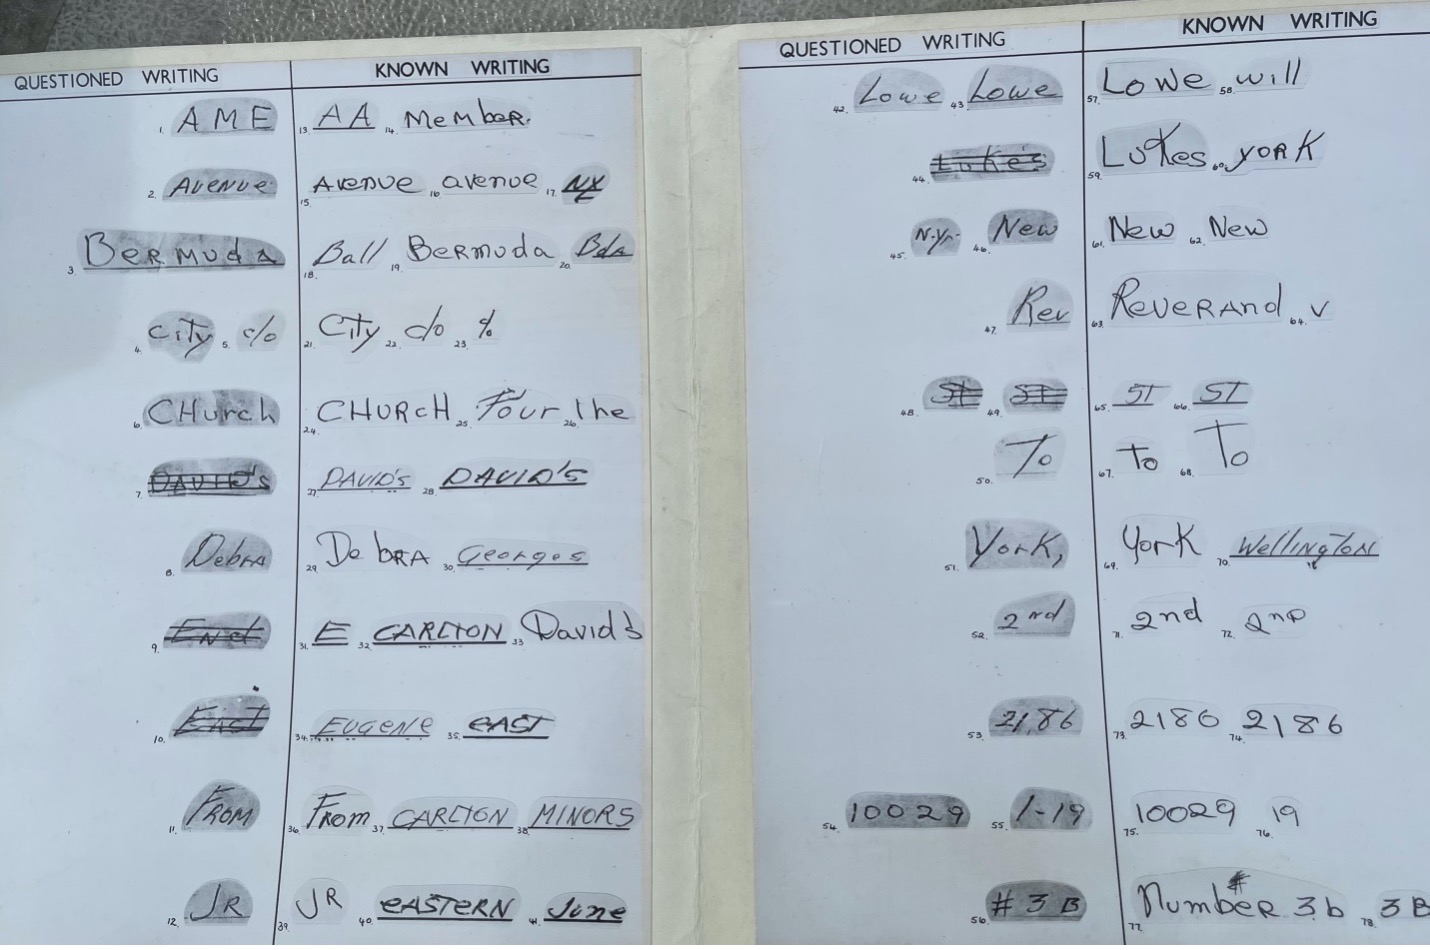 QUESTIONED WRITING KNOWN WRITING
1. AME 13. AA 14. MeMbeR.
2. AVENUE 15. AVenue 16. avenue 17. NY
3. BerMudA 18. Ball 19. BeRmuda 20. BdA
4. City 5. c/o 21. CiTy 22. c/o 23. %
6. CHurch 24. CHURcH 25. Four 26. the
7. DAVID'S 27. DAVID'S 28. DAVID'S
8. DebRA 29. DebRA 30. Georges
9. End 31. E 32. CARLTON 33. Davids
10. East 34. EUGENE 35. eAST
11. FROM 36. FRom 37. CARLTON 38. MINORS
12. JR 39. JR 40. eASTERN 41. June
QUESTIONED WRITING KNOWN WRITING
42. Lowe 43. Lowe 57. LoWe 58. will
44. Luke's 59. LuKes 60. yORK
45. N.Y. 46. New 61. New 62. New
47. Rev 63. ReveRANd 64. v
48. St 49. St 65. ST 66. ST
50. To 67. To 68. To
51. York, 69. YorK 70. WellingTON
52. 2nd 71. 2nd 72. 2ND
53. 21,86 73. 2186 74. 2186
54. 10029 55. 1-19 75. 10029 76. 19
56. # 3 B 77. # NumbeR 3b 78. 3B